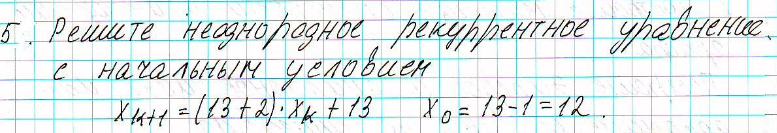 5. Решите неоднородное рекуррентное уравнение.
с начальным условием
x_{k+1} = (13+2)·x_k + 13    x_0 = 13-1 = 12.